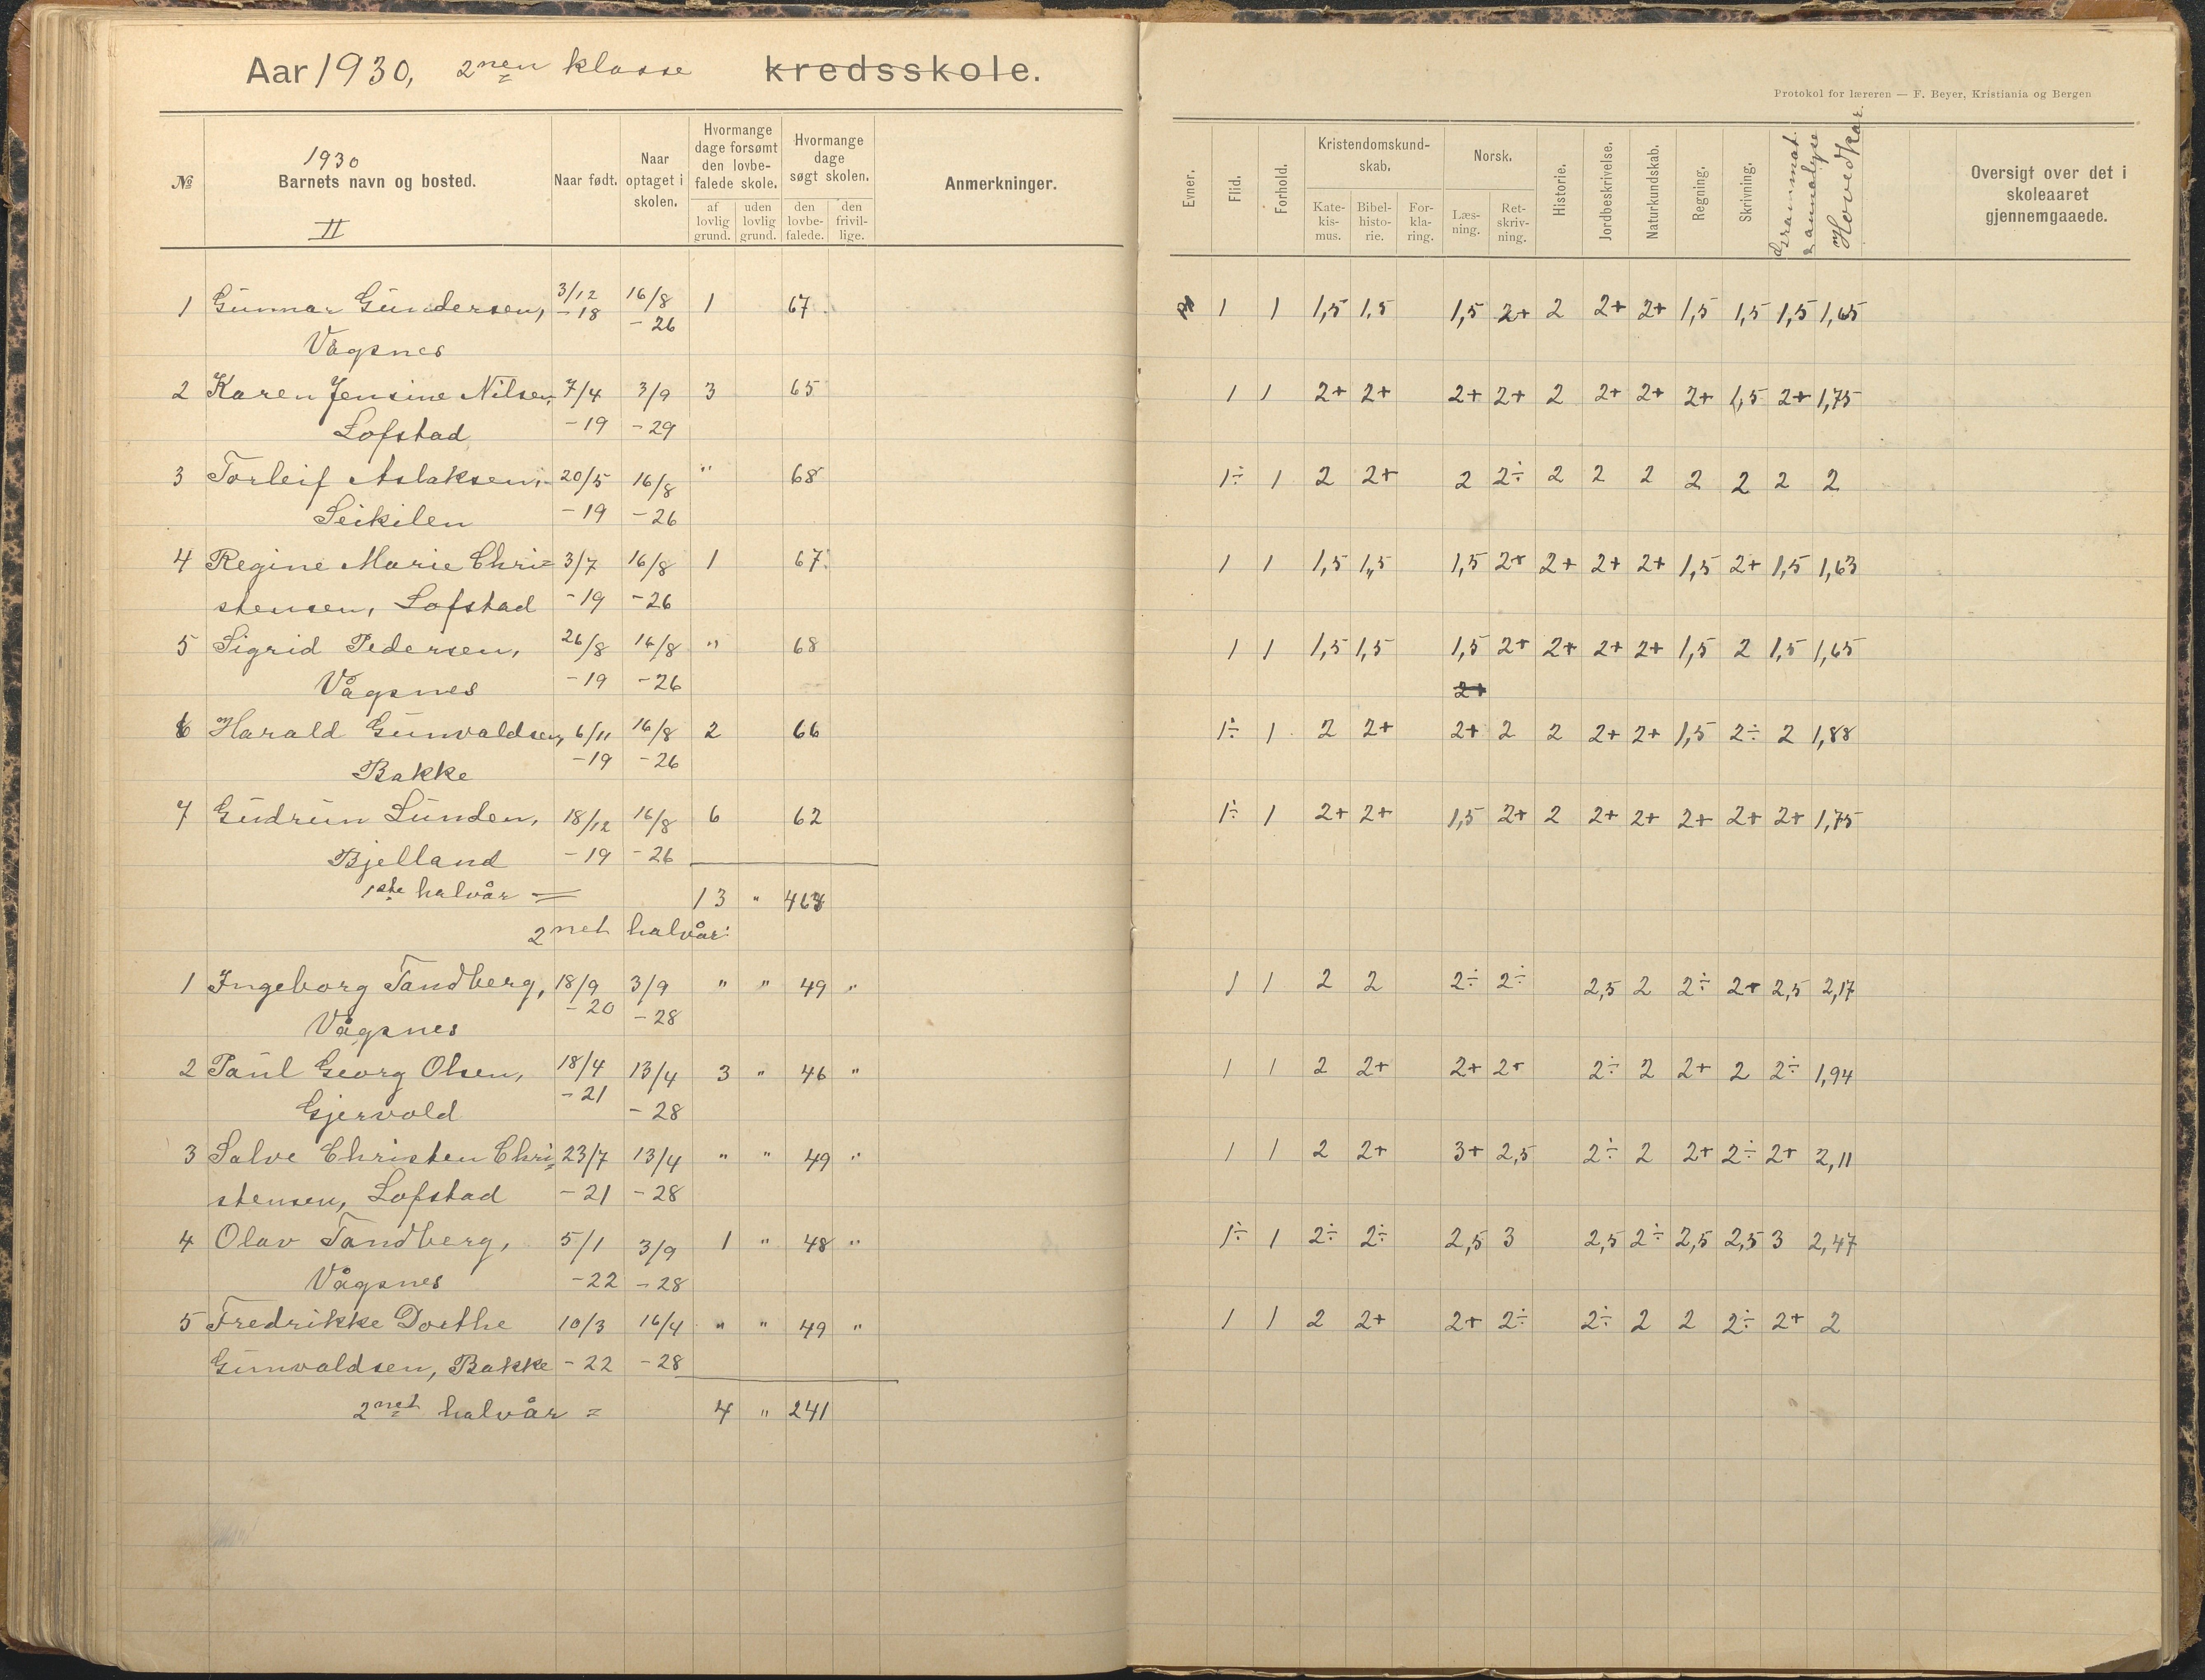 Aar 1930, 2nen klasse kredsskole.
№
1930
Barnets navn og bosted.
II
Naar født.
Naar
optaget i
skolen.
Hvormange
dage forsømt
den lovbe-
falede skole.
af
lovlig
grund.
uden
lovlig
grund.
Hvormange
dage
søgt skolen.
den
lovbe-
falede.
den
frivil-
lige.
Anmerkninger.
1 Gunnar Gundersen, 3/12 16/8 1 67
Vågsnes -18 -26
2 Karen Jensine Nilsen, 7/4 3/9 3 65
Lofstad -19 -29
3 Torleif Aslaksen, 20/5 16/8 " 68
Seikilen -19 -26
4 Regine Marie Chri= 3/7 16/8 1 67
stensen, Lofstad -19 -26
5 Sigrid Pedersen, 26/8 16/8 " 68
Vågsnes -19 -26
6 Harald Gunvaldsen, 6/11 16/8 2 66
Bakke -19 -26
7 Gudrun Lunden, 18/12 16/8 6 62
Bjelland -19 -26
1ste halvår = 13 " 463
2net halvår:
1 Ingeborg Tandberg, 18/9 3/9 " " 49 "
Vågsnes -20 -28
2 Paul Georg Olsen, 18/4 13/4 3 " 46 "
Gjervold -21 -28
3 Salve Christen Chri= 23/7 13/4 " " 49 "
stensen, Lofstad -21 -28
4 Olav Tandberg, 5/1 3/9 1 " 48 "
Vågsnes -22 -28
5 Fredrikke Dorthe 10/3 16/4 " " 49 "
Gunvaldsen, Bakke -22 -28
2net halvår = 4 " 241
Protokol for læreren — F. Beyer, Kristiania og Bergen
Evner.
Flid.
Forhold.
Kristendomskund-
skab.
Kate-
kis-
mus.
Bibel-
histo-
rie.
For-
kla-
ring.
Norsk.
Læs-
ning.
Ret-
skriv-
ning.
Historie.
Jordbeskrivelse.
Naturkundskab.
Regning.
Skrivning.
Hovedkar.
Oversigt over det i
skoleaaret
gjennemgaaede.
1 1 1,5 1,5 1,5 2+ 2 2+ 2+ 1,5 1,5 1,5 1,65
1 1 2+ 2+ 2+ 2+ 2 2+ 2+ 2+ 1,5 2+ 1,75
1÷ 1 2 2+ 2 2÷ 2 2 2 2 2 2 2
1 1 1,5 1,5 1,5 2+ 2+ 2+ 2+ 1,5 2+ 1,5 1,63
1 1 1,5 1,5 1,5 2+ 2+ 2+ 2+ 1,5 2 1,5 1,65
2+
1÷ 1 2 2+ 2+ 2 2 2+ 2+ 1,5 2÷ 2 1,88
1÷ 1 2+ 2+ 1,5 2+ 2 2+ 2+ 2+ 2+ 2+ 1,75
1 1 2 2 2÷ 2÷ 2,5 2 2÷ 2+ 2,5 2,17
1 1 2 2+ 2+ 2+ 2÷ 2 2+ 2 2÷ 1,94
1 1 2 2+ 3+ 2,5 2÷ 2 2+ 2÷ 2+ 2,11
1÷ 1 2÷ 2÷ 2,5 3 2,5 2÷ 2,5 2,5 3 2,47
1 1 2 2+ 2+ 2÷ 2÷ 2 2 2÷ 2+ 2